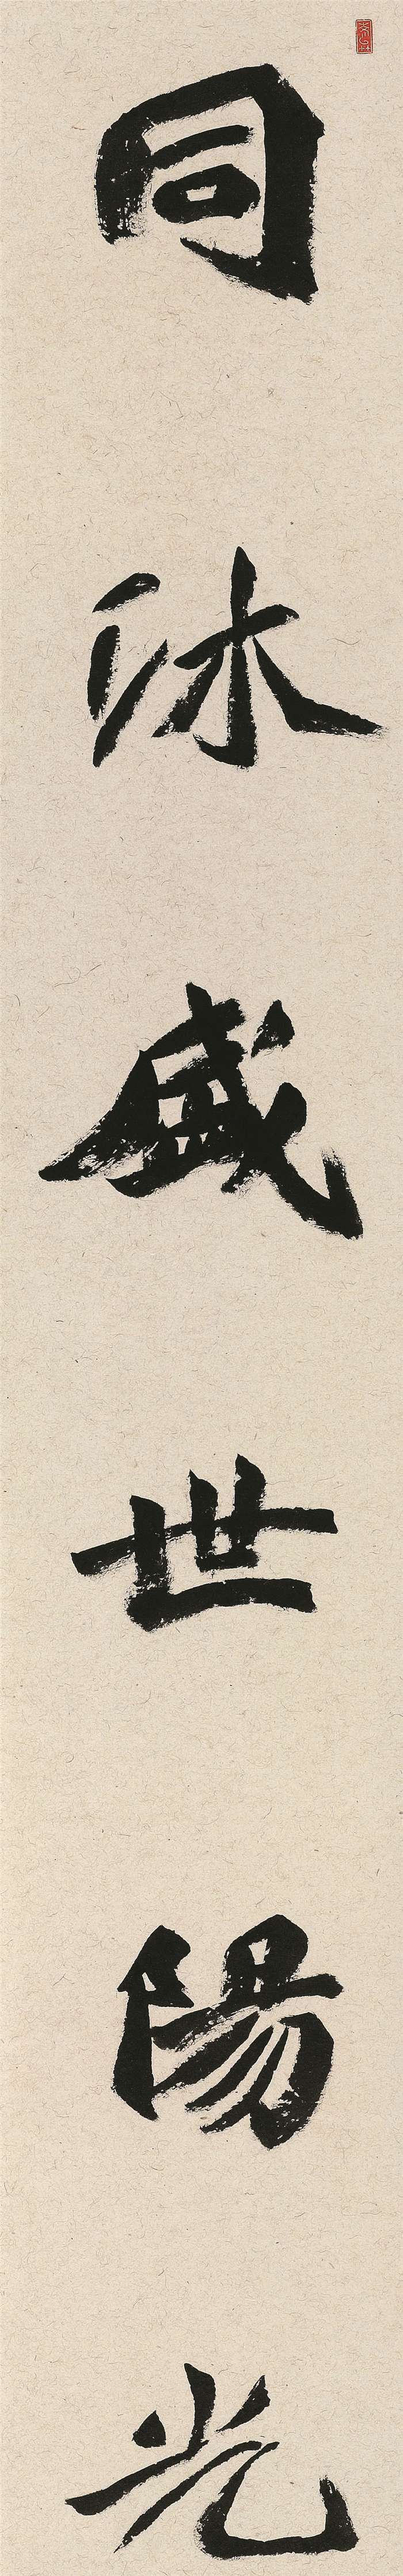 同沐盛世陽光